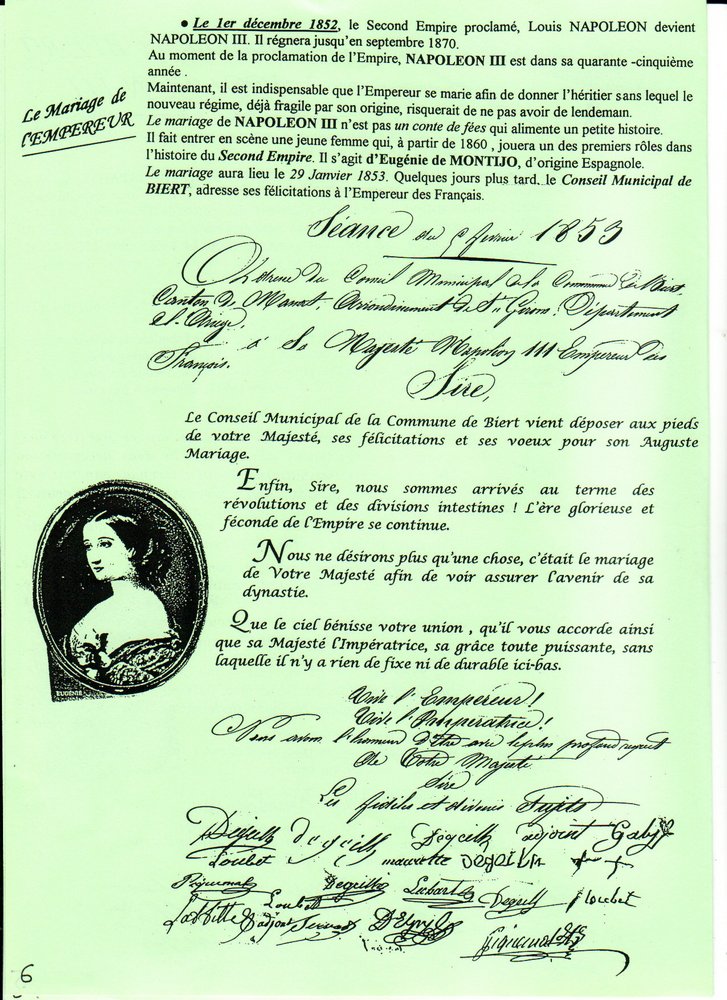 • Le 1er décembre 1852, le Second Empire proclamé, Louis NAPOLEON devient
NAPOLEON III. Il régnera jusqu'en septembre 1870.
Au moment de la proclamation de l'Empire, NAPOLEON III est dans sa quarante -cinquième
année .
Maintenant, il est indispensable que l'Empereur se marie afin de donner l'héritier sans lequel le
nouveau régime, déjà fragile par son origine, risquerait de ne pas avoir de lendemain.
Le mariage de NAPOLEON III n'est pas un conte de fées qui alimente un petite histoire.
Il fait entrer en scène une jeune femme qui, à partir de 1860 , jouera un des premiers rôles dans
l'histoire du Second Empire. Il s'agit d'Eugénie de MONTIJO, d'origine Espagnole.
Le mariage aura lieu le 29 Janvier 1853. Quelques jours plus tard, le Conseil Municipal de
BIERT, adresse ses félicitations à l'Empereur des Français.
Le Mariage de
l'EMPEREUR
Séance du février 1853
du Conseil Municipal de la Commune de Biert,
Canton de Massat, Arrondissement de St Girons, Département
de l'Ariège,
à Sa Majesté Napoléon III Empereur des
Français.
Sire,
Le Conseil Municipal de la Commune de Biert vient déposer aux pieds
de votre Majesté, ses félicitations et ses voeux pour son Auguste
Mariage.
Enfin, Sire, nous sommes arrivés au terme des
révolutions et des divisions intestines ! L'ère glorieuse et
féconde de l'Empire se continue.
Nous ne désirons plus qu'une chose, c'était le mariage
de Votre Majesté afin de voir assurer l'avenir de sa
dynastie.
Que le ciel bénisse votre union , qu'il vous accorde ainsi
que sa Majesté l'Impératrice, sa grâce toute puissante, sans
laquelle il n'y a rien de fixe ni de durable ici-bas.
EUGÉNIE
Vive l'Empereur!
Vive l'Impératrice!
Nous avons l'honneur d'être avec le plus profond respect
de Votre Majesté
Sire
Les fidèles et dévoués Sujets
adjoint Galy
Loubet
Loubet
Loubet
adjoint
6